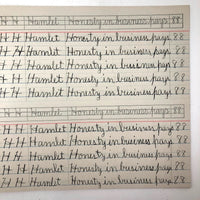 H H Hamlet Honesty in business pays 88
H H Hamlet Honesty in business pays 88
H H Hamlet Honesty in business pays 88
H H Hamlet Honesty in business pays 88
H H Hamlet Honesty in business pays 88
H H Hamlet Honesty in business pays 88
H H Hamlet Honesty in business pays 88
H H Hamlet Honesty in business pays 88
H H Hamlet Honesty in business pays 88
H H Hamlet Honesty in business pays 88
H H Hamlet Honesty in business pays 88
H H Hamlet Honesty in business pays 88